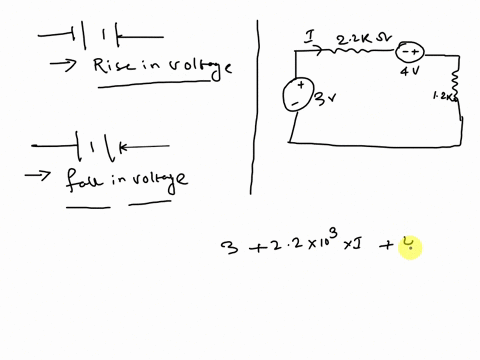 → Rise in voltage
→ fall in voltage
I 2.2K Ω
- +
4V
+
-
3v
1.2K
3 + 2.2 × 10³ × I + 4